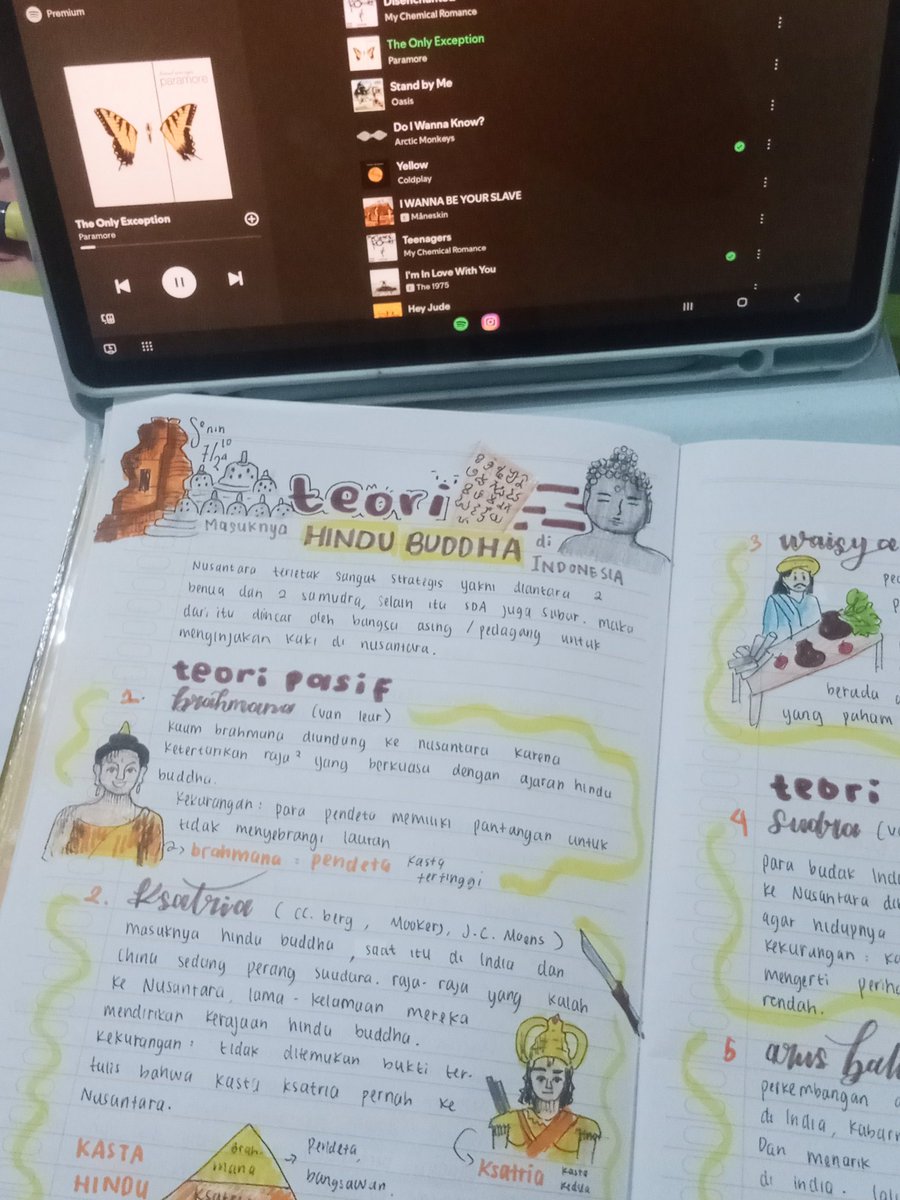 Premium
Disenchanted
My Chemical Romance
The Only Exception
Paramore
Stand by Me
Oasis
Do I Wanna Know?
Arctic Monkeys
Yellow
Coldplay
I WANNA BE YOUR SLAVE
E Måneskin
Teenagers
My Chemical Romance
I'm In Love With You
E The 1975
Hey Jude
paramore
The Only Exception
Paramore
Senin
7/10 24
teori
Masuknya HINDU BUDDHA di
INDONESIA
Nusantara terletak sangat strategis yakni diantara 2
benua dan 2 samudra, selain itu SDA juga subur. maka
dari itu diincar oleh bangsa asing / pedagang untuk
menginjakan kaki di nusantara.
teori pasif
1. brahmana (van leur)
kaum brahmana diundang ke nusantara karena
ketertarikan raja² yang berkuasa dengan ajaran hindu
buddha.
kekurangan : para pendeta memiliki pantangan untuk
tidak menyebrangi lautan
brahmana : pendeta kasta
tertinggi
2. Ksatria (CC. berg, Mookerj, J.C. Moens)
masuknya hindu buddha, saat itu di India dan
China sedang perang saudara. raja-raja yang kalah
ke Nusantara, lama-kelamaan mereka
mendirikan kerajaan hindu buddha.
kekurangan : tidak ditemukan bukti ter-
tulis bahwa kasta ksatria pernah ke
Nusantara.
Ksatria kasta
kedua
KASTA
HINDU
brah-
mana
Ksatria
Pendeta,
bangsawan.
3 waisya
berada
yang paham
teori
4 Sudra
para budak
ke Nusantara
agar hidupnya
kekurangan :
mengerti
rendah.
5 arus
perkembangan
di India,
Dan menarik
di india.